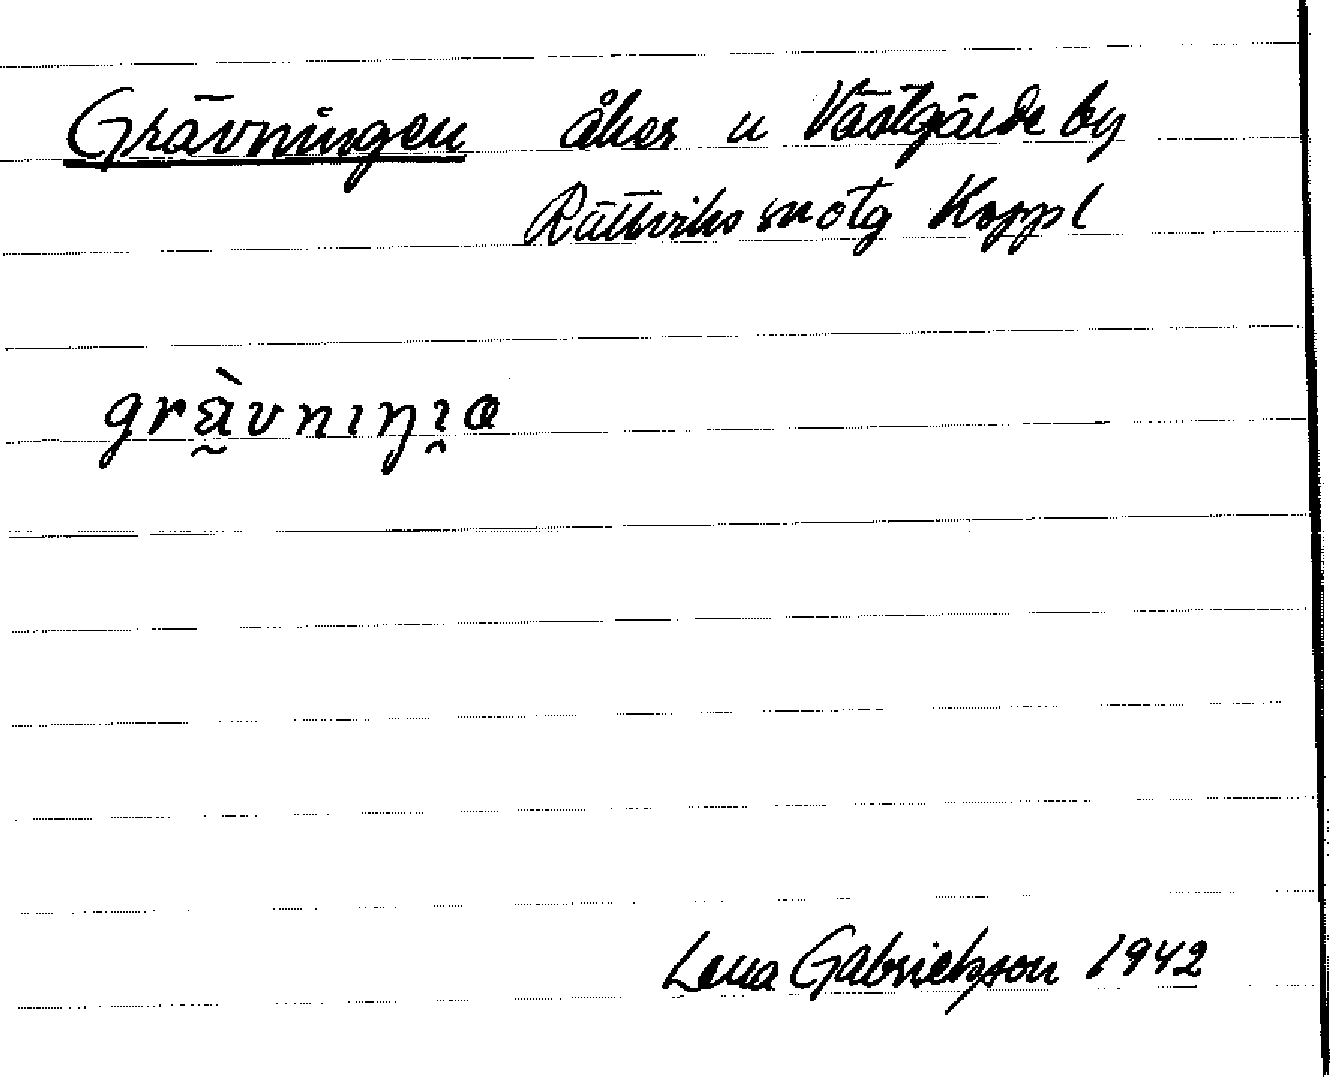 Grävningen åker u Västgärde by
Rättviks sn otg Koppl
grä̀vnıŋı̯ɑ
Lena Gabrielsson 1942